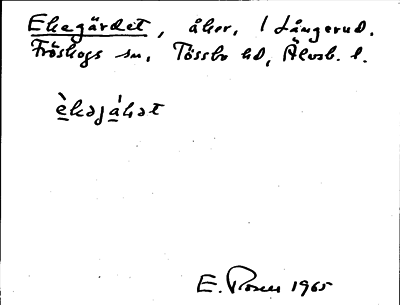 Ekegärdet, åker, / Långerud.
Fröskogs sn, Tössbo hd, Älvsb. l.
E. Rosen 1965